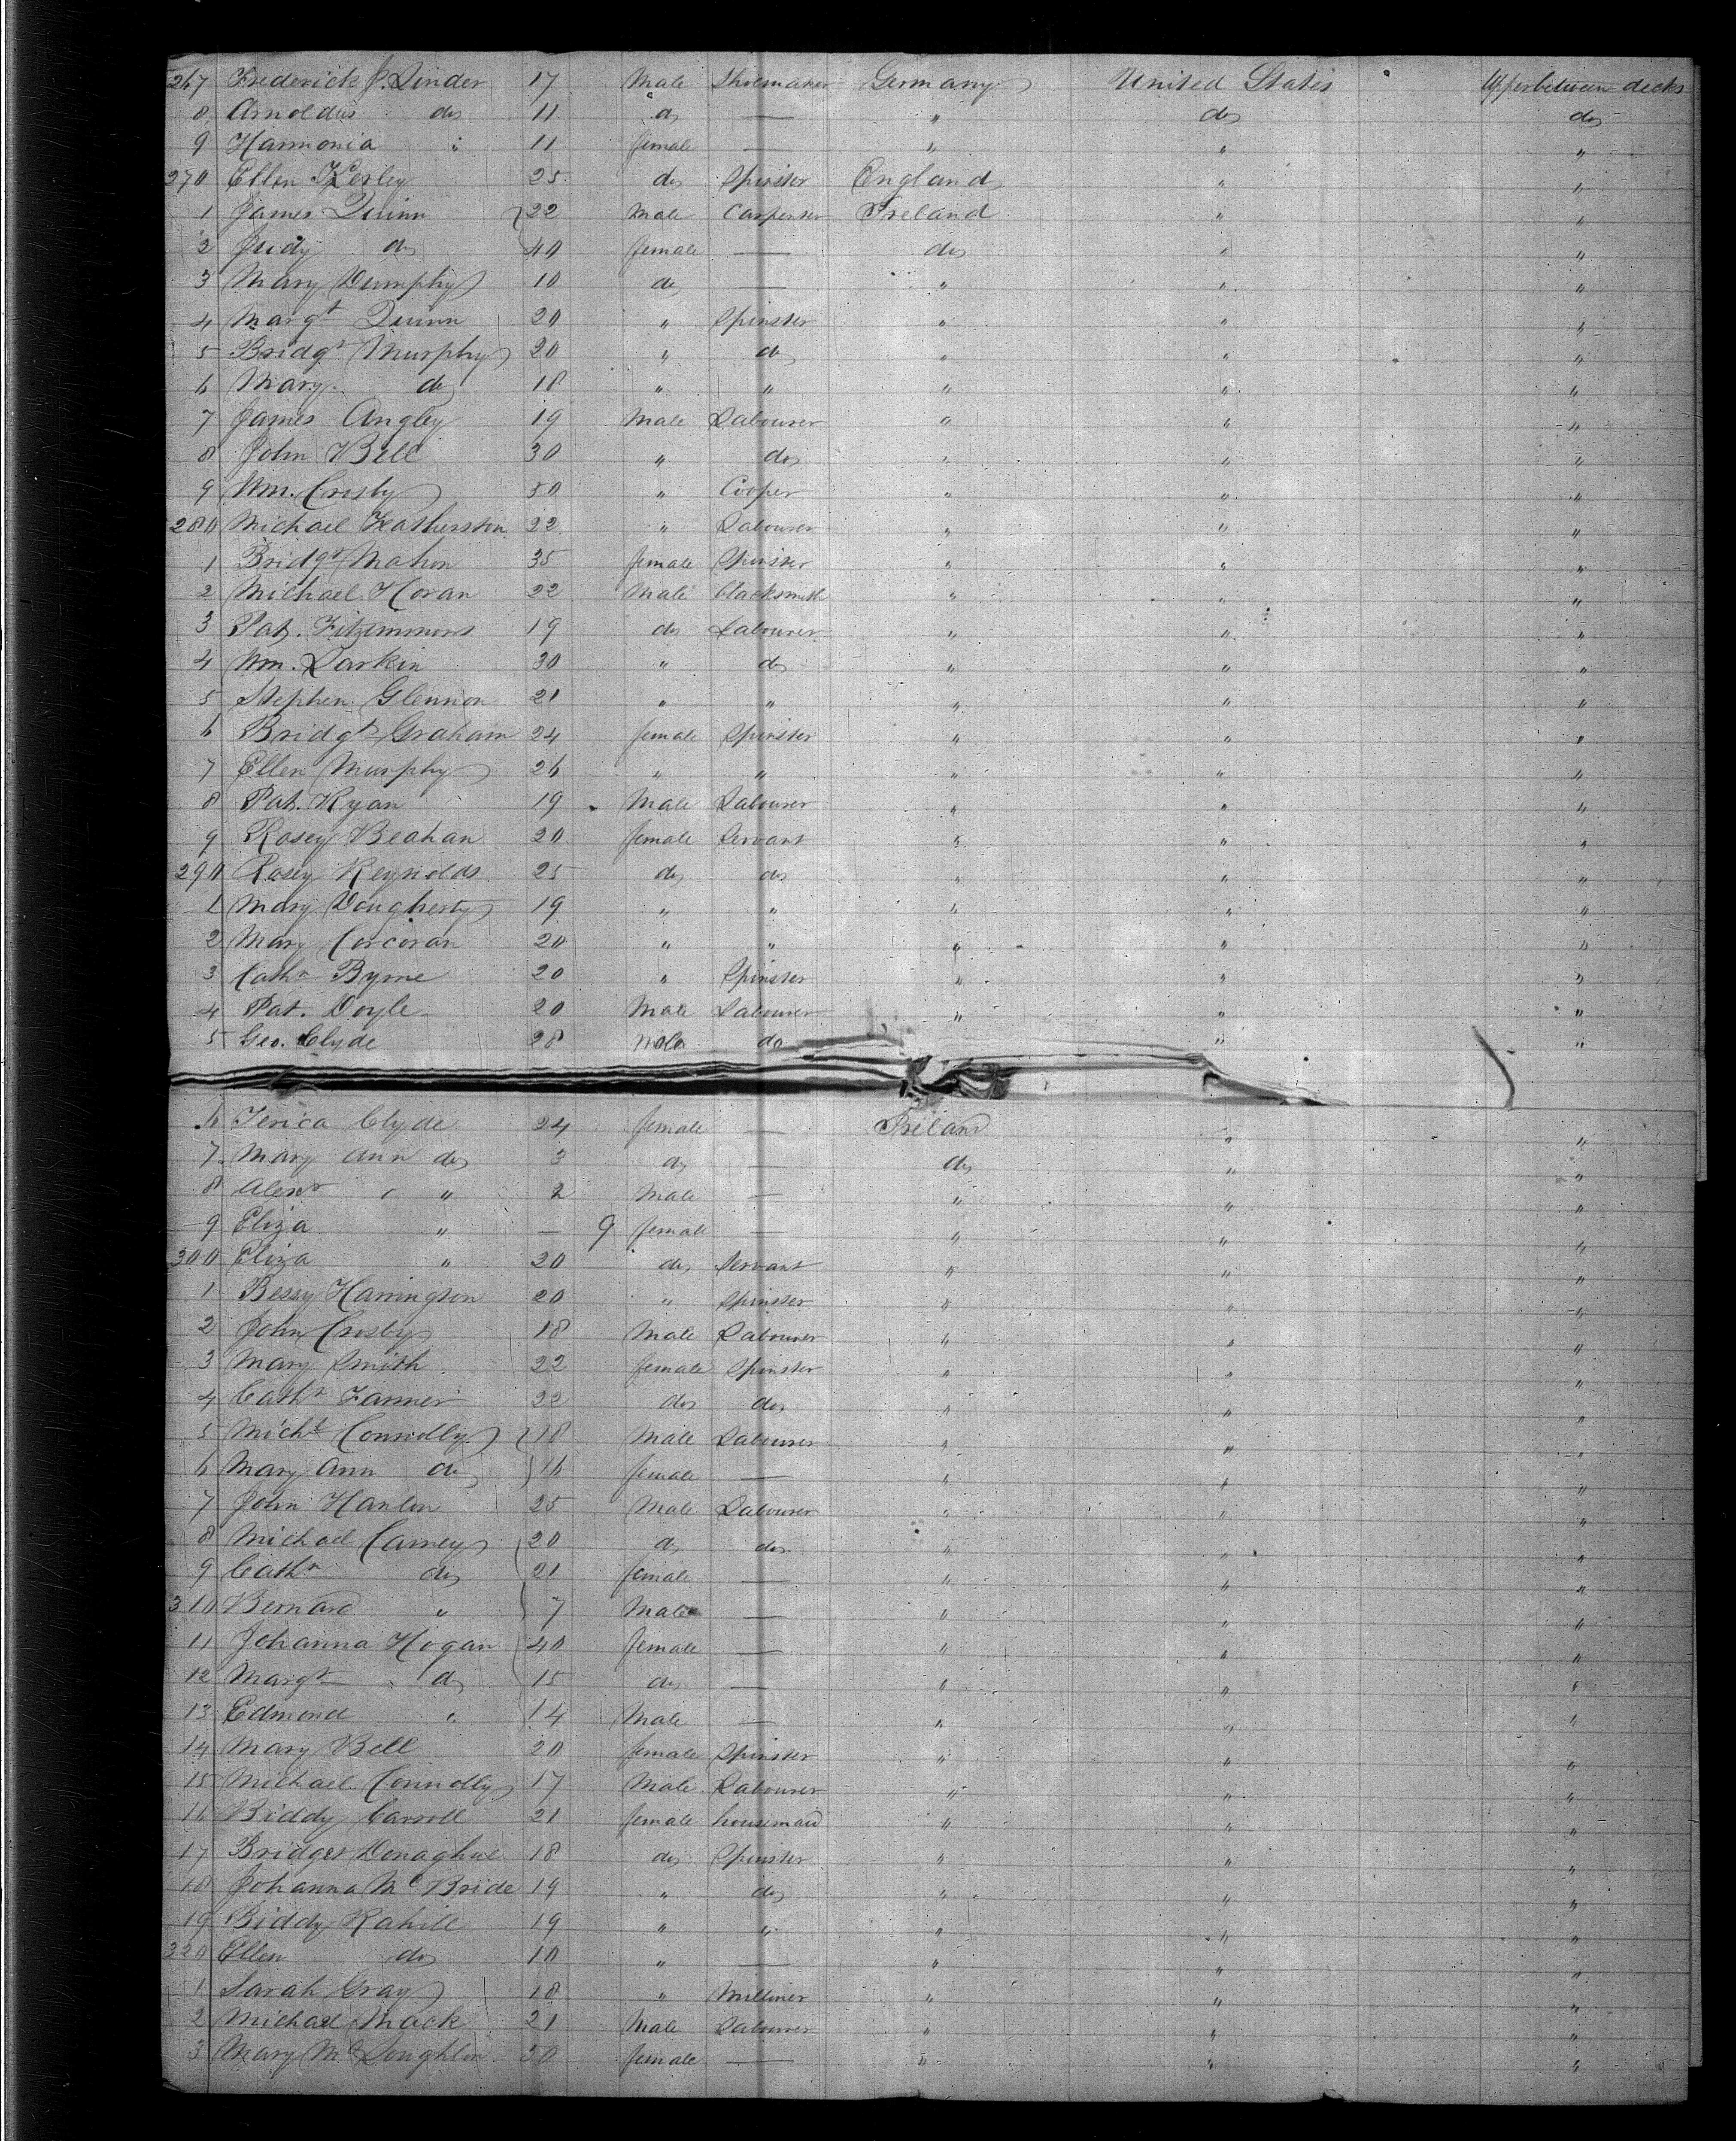 267 Frederick J. Linder 17 Male Shoemaker Germany United States Upper between decks
8 Arnoldus do 11 do — " do do
9 Harmonia " 11 female — " " "
270 Ellen Kerley 25 do Spinster England " "
1 James Quinn 22 Male Carpenter Ireland " "
2 Judy do 40 female — do " "
3 Mary Dumphy 10 do — " " "
4 Margt Quinn 20 " Spinster " " "
5 Bridgt Murphy 20 " do " " "
6 Mary do 18 " " " " "
7 James Angley 19 Male Labourer " " "
8 John Bell 30 " do " " "
9 Wm. Crosby 50 " Cooper " " "
280 Michael Featherston 22 " Labourer " " "
1 Bridgt Mahon 35 female Spinster " " "
2 Michael Horan 22 Male blacksmith " " "
3 Pat. Fitzimmons 19 do Labourer " " "
4 Wm. Larkin 30 " do " " "
5 Stephen Glennon 21 " " " " "
6 Bridgt Graham 24 female Spinster " " "
7 Ellen Murphy 26 " " " " "
8 Pat. Ryan 19 Male Labourer " " "
9 Rosey Beahan 20 female Servant " " "
290 Rosey Reynolds 25 do do " " "
1 Mary Dougherty 19 " " " " "
2 Mary Corcoran 20 " " " " "
3 Cathn Byrne 20 " Spinster " " "
4 Pat. Doyle 20 Male Labourer " " "
5 Geo. Clyde 28 Male do " "
6 Clyde 24 female — Ireland " "
7 Mary Ann do 3 do — do " "
8 Alexr " 2 Male — " " "
9 Eliza " — 9 female — " " "
300 Eliza " 20 do Servant " " "
1 Bessy Harrington 20 " Spinster " " "
2 John Crosby 18 Male Labourer " " "
3 Mary Smith 22 female Spinster " " "
4 Cathn Farmer 22 do do " " "
5 Michl Connolly 18 Male Labourer " " "
6 Mary Ann do 16 female — " " "
7 John Hanlon 25 Male Labourer " " "
8 Michael Carney 20 do do " " "
9 Cathn do 21 female — " " "
310 Bernard " 7 Male — " " "
11 Johanna Hogan 40 female — " " "
12 Margt do 15 do — " " "
13 Edmond " 14 Male — " " "
14 Mary Bell 20 female Spinster " " "
15 Michael Connolly 17 Male Labourer " " "
16 Biddy Carroll 21 female housemaid " " "
17 Bridget Donaghue 18 do Spinster " " "
18 Johanna McBride 19 " do " " "
19 Biddy Rahill 19 " " " " "
320 Ellen do 10 " — " " "
1 Sarah Gray 18 " Milliner " " "
2 Michael Mack 21 Male Labourer " " "
3 Mary McLoughlin 50 female — " " "